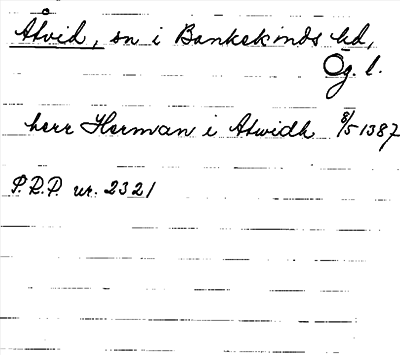 Åtvid, sn i Bankekinds hd,
Ög. l.
herr Herman i Atwidh 8/5 1387
P.R.P. nr. 2321